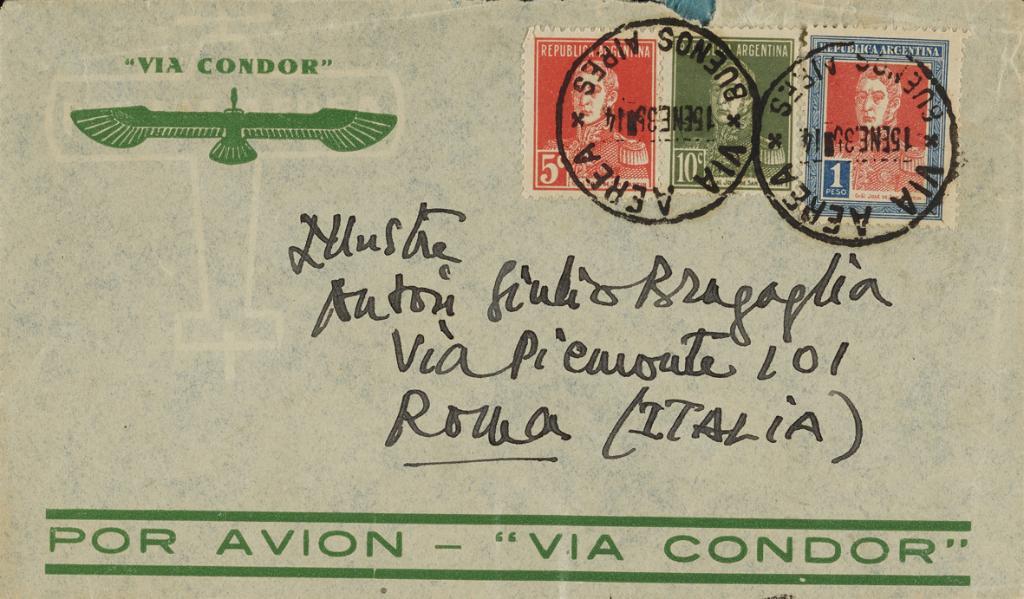 "VIA CONDOR"
REPUBLICA ARGENTINA
5c
ARGENTINA
10c
REPUBLICA ARGENTINA
1
PESO
VIA AEREA * BUENOS AIRES *
15ENE 14
VIA AEREA * BUENOS AIRES *
15ENE 14
Illustre
Anton Giulio Bragaglia
Via Piemonte 101
Roma (ITALIA)
POR AVION – "VIA CONDOR"